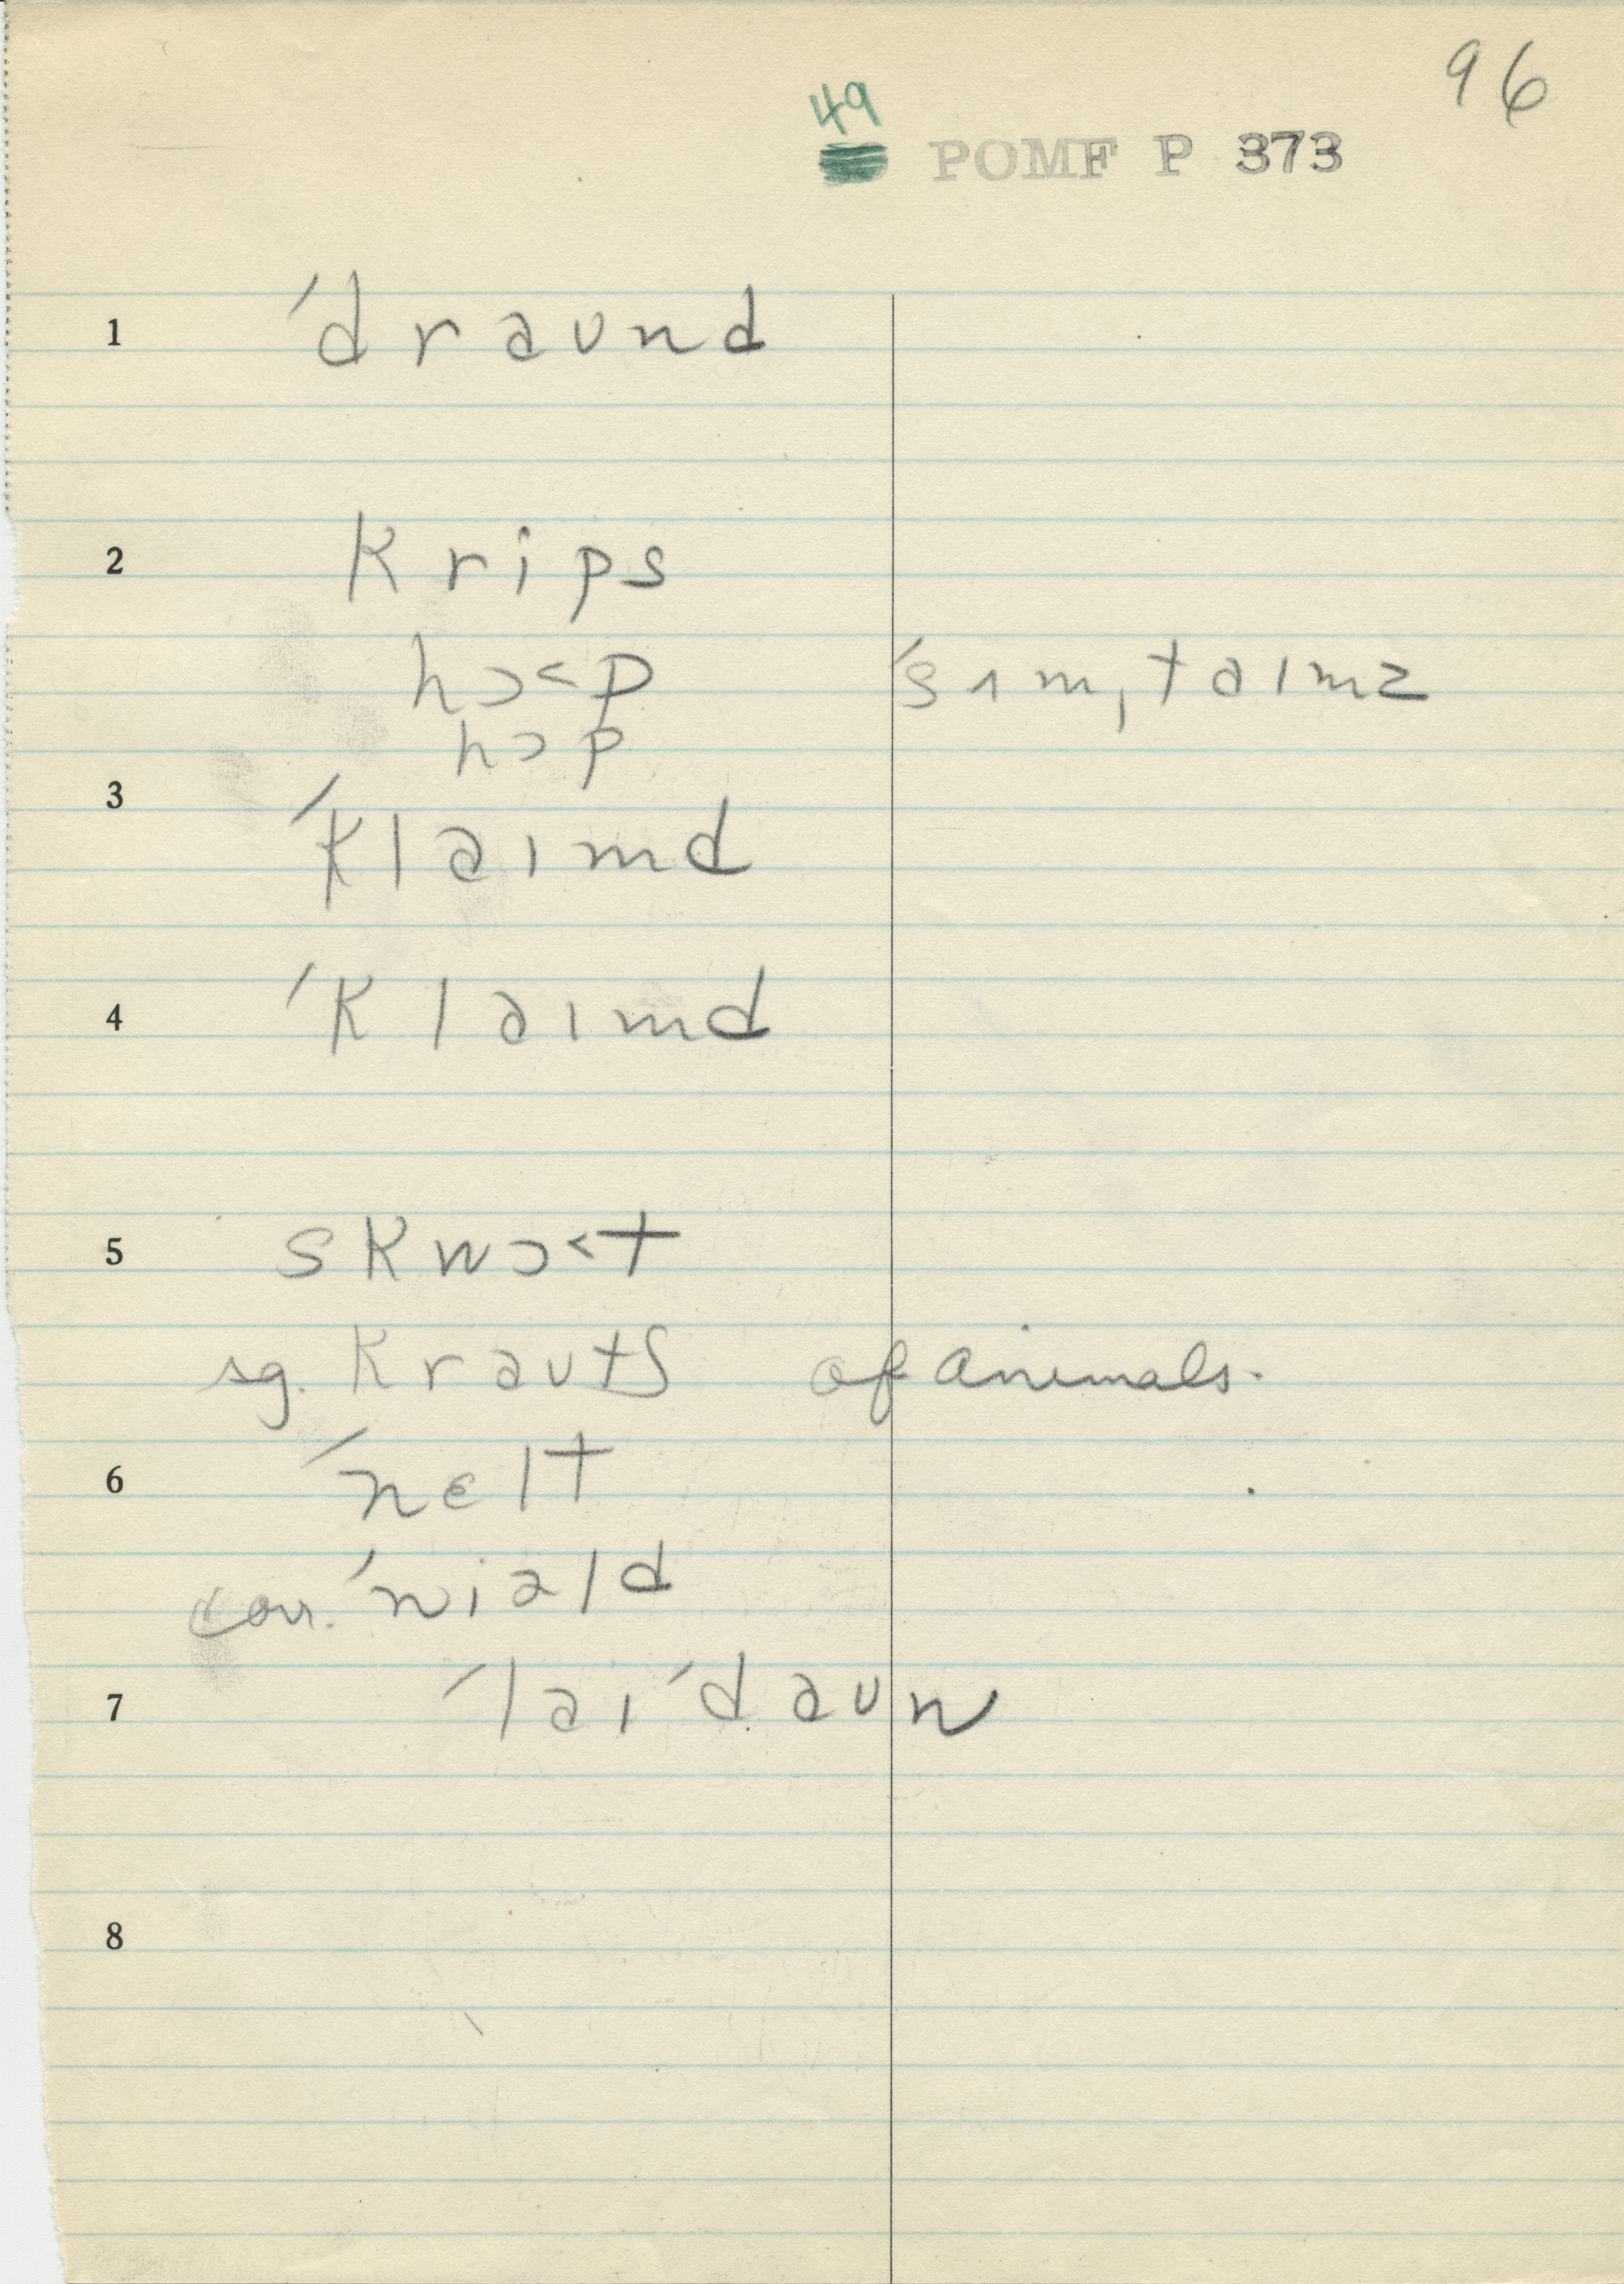 96
49
POMF P 373
1 ˈdraund
2 krips
hɔ˂p ˈsʌmˌtaımz
hɔp
3 ˈklaımd
4 ˈklaımd
5 skwɔ˂t
sg. krautʃ of animals.
6 ˈnɛlt
corr. ˈniəld
7 ˈlaıˈdaun
8